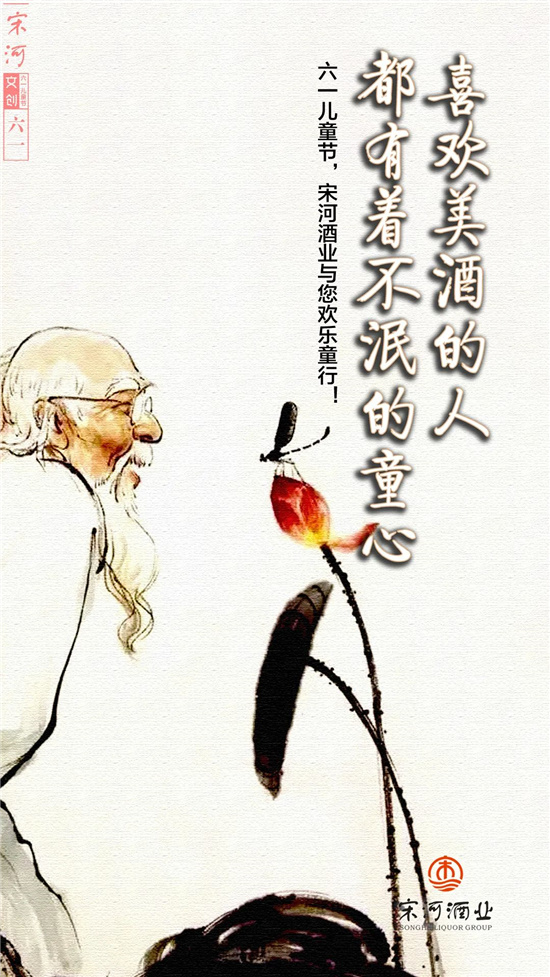 喜欢美酒的人
都有着不泯的童心
六一儿童节，宋河酒业与您欢乐童行！
宋河
文创
六一儿童节
六一
宋河酒业
SONGHE LIQUOR GROUP